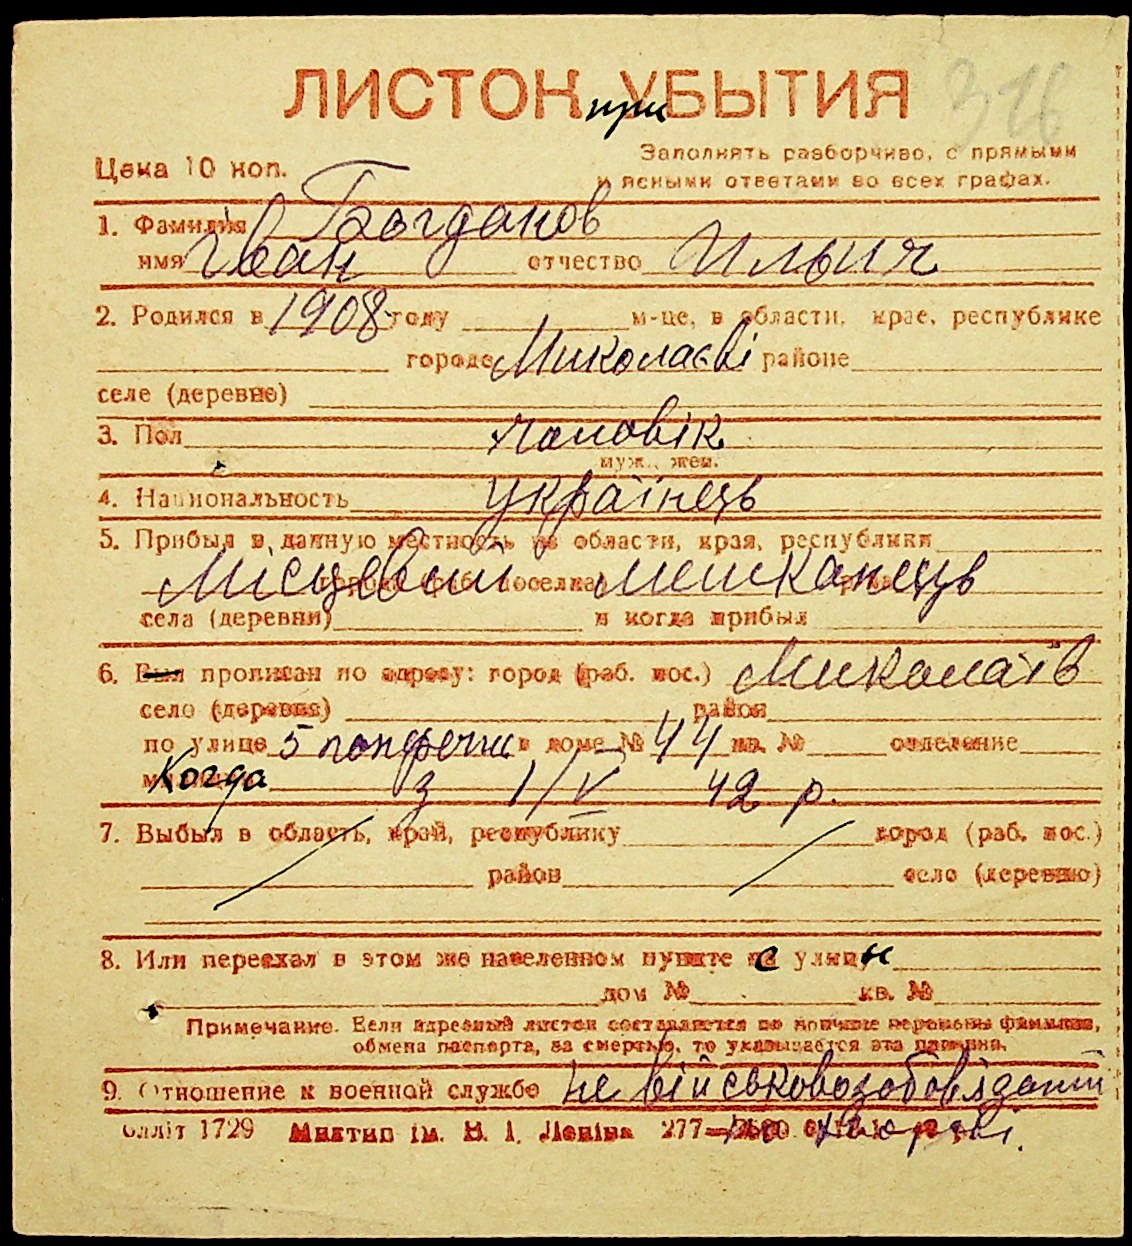 ЛИСТОК при УБЫТИЯ
316
Цена 10 коп.
Заполнять разборчиво, с прямыми
и ясными ответами во всех графах.
1. Фамилия Богданов
имя Іван отчество Ильич
2. Родился в 1908 году м-це, в области, крае, республике
городе Миколаєві районе
селе (деревне)
3. Пол чоловік
муж., жен.
4. Национальность українець
5. Прибыл в данную местность из области, края, республики
Місцевий мешканець
города (раб. поселка)
села (деревни) и когда прибыл
6. Был прописан по адресу: город (раб. пос.) Миколаїв
село (деревня) район
по улице 5 попереч в доме № 44 кв. № отделение
Когда з 1/V 42 р.
7. Выбыл в область, край, республику город (раб. пос.)
район село (деревню)
8. Или переехал в этом же населенном пункте с улицы
дом № кв. №
Примечание. Если адресный листок составляется по причине перемены фамилии,
обмена паспорта, за смертью, то указывается эта причина.
9. Отношение к военной службе не військовозобов'язаний
по хворобі.
блліт 1729 Миктип ім. В. І. Леніна 277